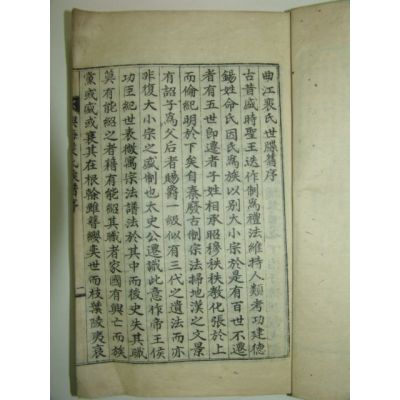 曲江裵氏世牒舊序
古昔盛時聖王迭作制爲禮法維持人類考功建德
錫姓命氏因氏爲族以别大小宗於是有百世不遷
者有五世卽遷者子姓相承昭穆秩秩教化張於上
而倫紀明於下矣自秦廢古制宗法掃地漢之文景
有詔子爲父后者賜爵一級似有三代之遺法而亦
非復大小宗之盛制也太史公遷識此意作帝王侯
功臣紀世表微寓宗法譜法於其中而後史失其職
莫有能紹之者藉有能紹其職者家國有興亡而族
黨或盛或衰其在根榦雖簪纓奕世而枝葉陵夷衰
氏族譜序 二